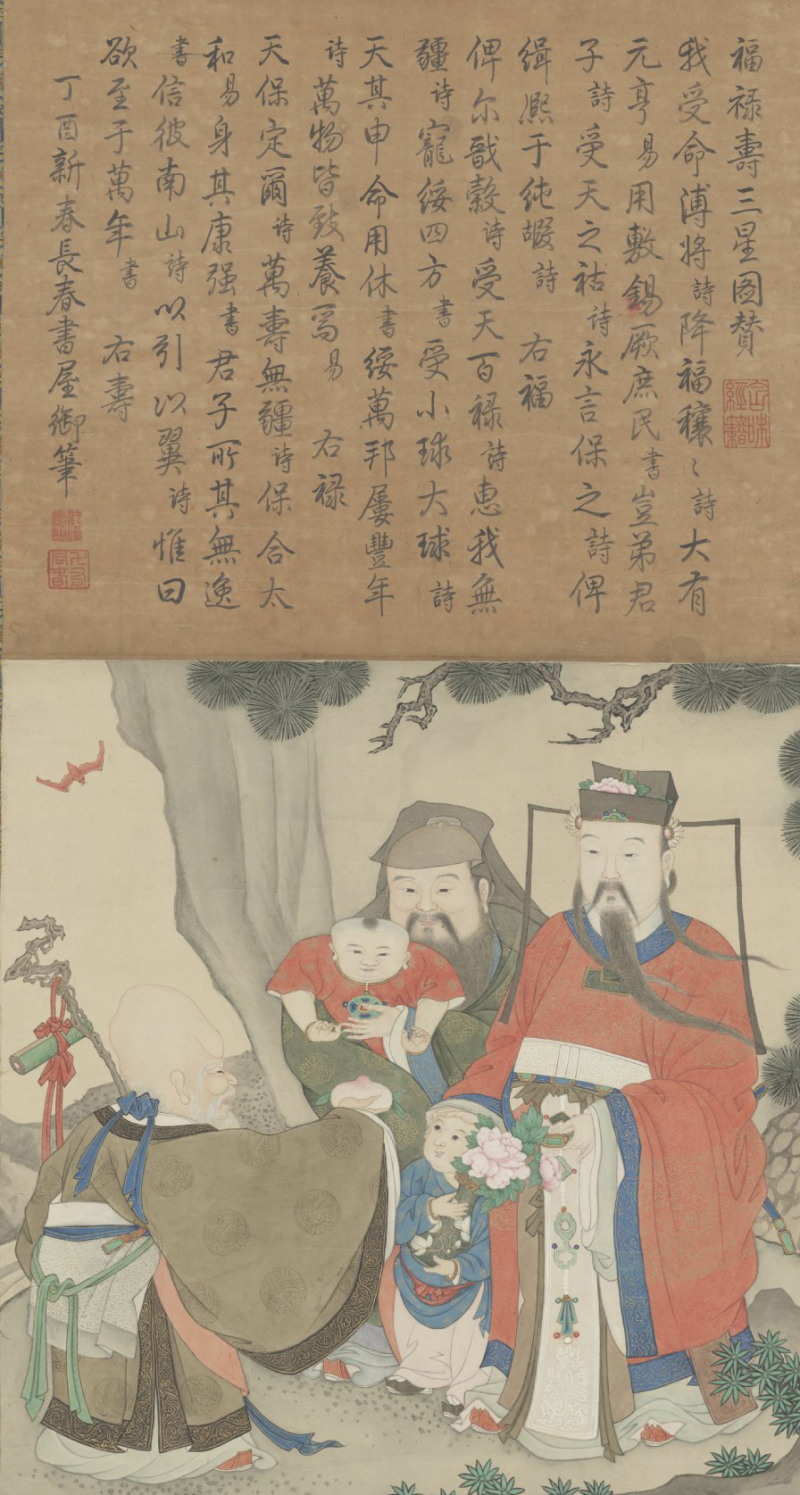 福祿壽三星圖贊
我受命溥將詩降福穰〻詩大有
元亨易用敷錫厥庶民書豈弟君
子詩受天之祜詩永言保之詩俾
緝熙于純嘏詩 右福
俾尔戩穀詩受天百祿詩惠我無
疆詩寵綏四方書受小球大球詩
天其申命用休書綏萬邦屢豐年
詩萬物皆致養焉易 右祿
天保定爾詩萬壽無疆詩保合太
和易身其康强書君子所其無逸
書信彼南山詩以引以翼詩惟曰
欲至于萬年書 右壽
丁酉新春長春書屋御筆